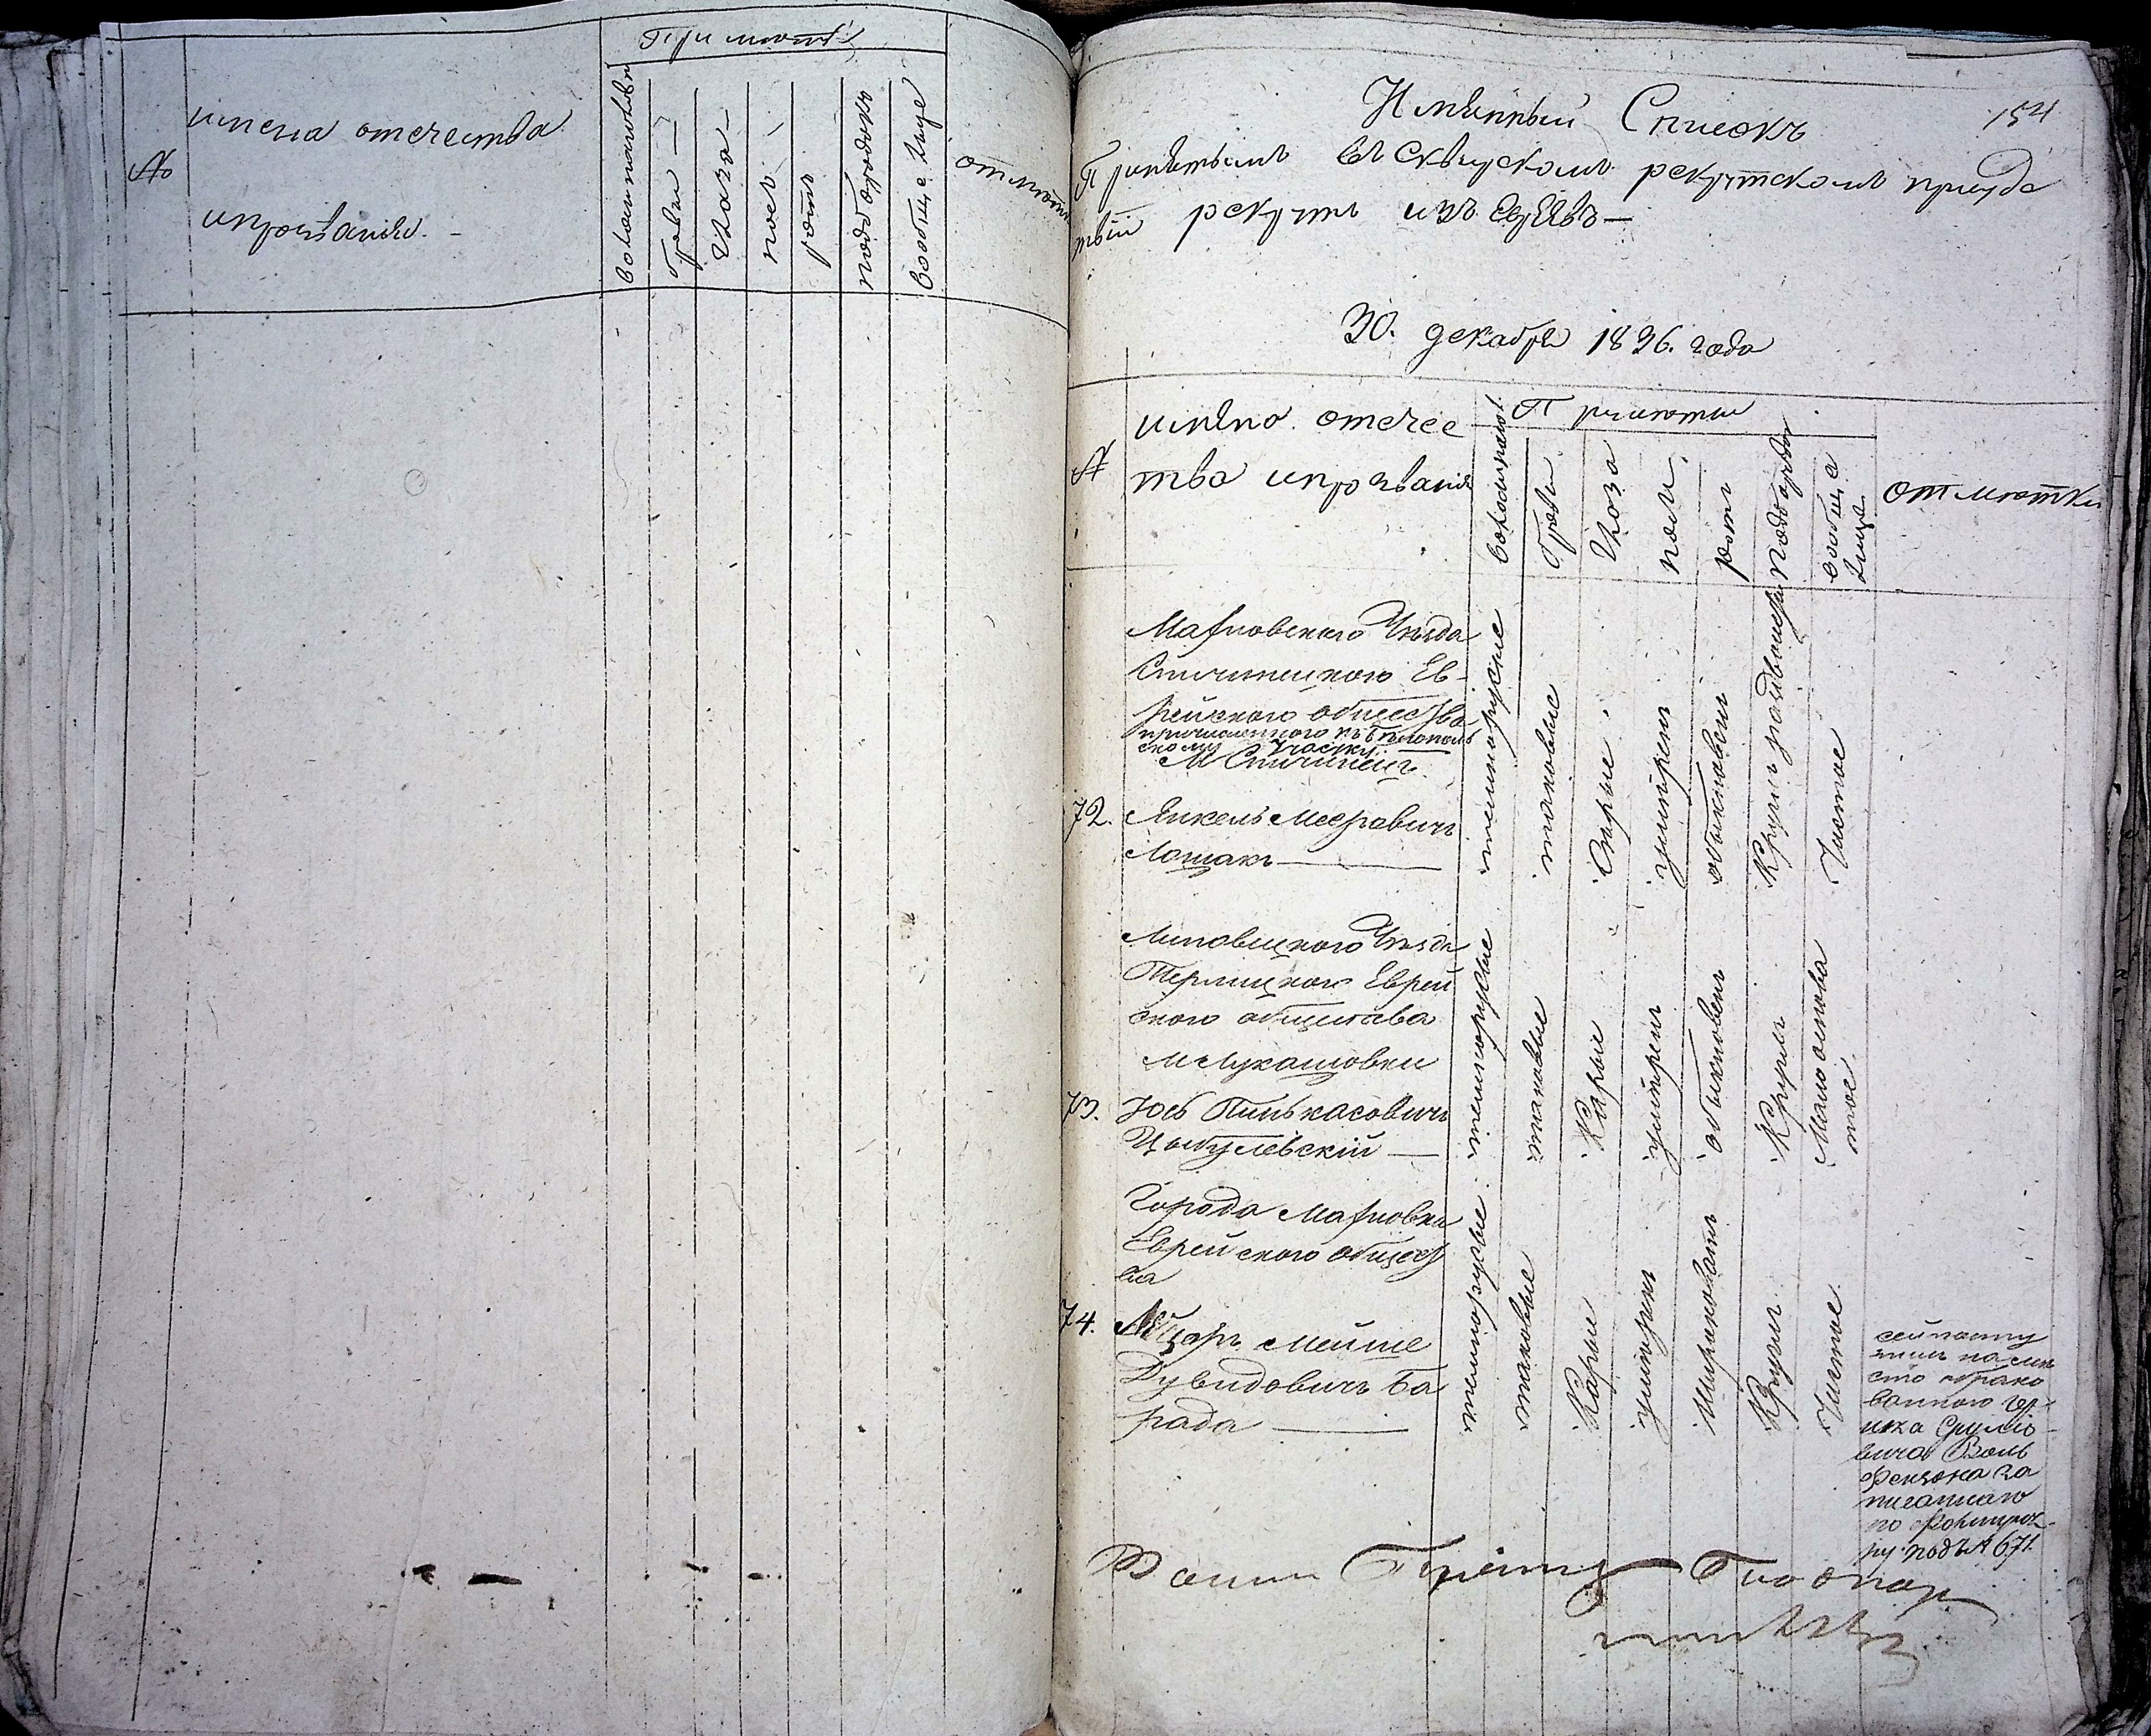 №
имена отечества
и прозвание. -
Приметы
волосы на головѣ
брови -
глаза -
носъ
ротъ
подбородокъ
вообще лице
отметки
154
Имянный Списокъ
Принятымъ въ Сквирскомъ рекрутскомъ присуд
ствіи рекрутъ изъ евреевъ -
30. декабря 1836. года
№
имяна. отечес
тва и прозвания
Приметы
брови
глаза
носъ
ротъ
подбородок
вообще
лице
отметки
Махновского Уезда
Спичинецкого Ев-
рейского общества
причисленного къ
скому участку
М Спичинецъ
72.
Янкель Меерович
Лошакъ
темнорусые
таковые
Серые
умѣрен
обыкновен
Кругл раздвоен
Чистое
Липовецкого Уезда
Терлицкого Еврей
ского общества
М Лукашовки
73.
Юсь Пинькасович
Цыбулевскій
темнорусые
таковые
Карые
умѣрен
обыкновен
Кругл
Мало оспова
тое
Города Махновки
Еврейского общест
ва
74.
Мейше
Дувидовичъ Ба
рада
темнорусые
таковые
Карые
умѣрен
Широковатъ
Кругл
Чистое
сей посту
пилъ на мѣ
сто обрако
ванного Гер
шка Срулио
вича Воль
фензона за
писанного
по
ру подъ № 671.